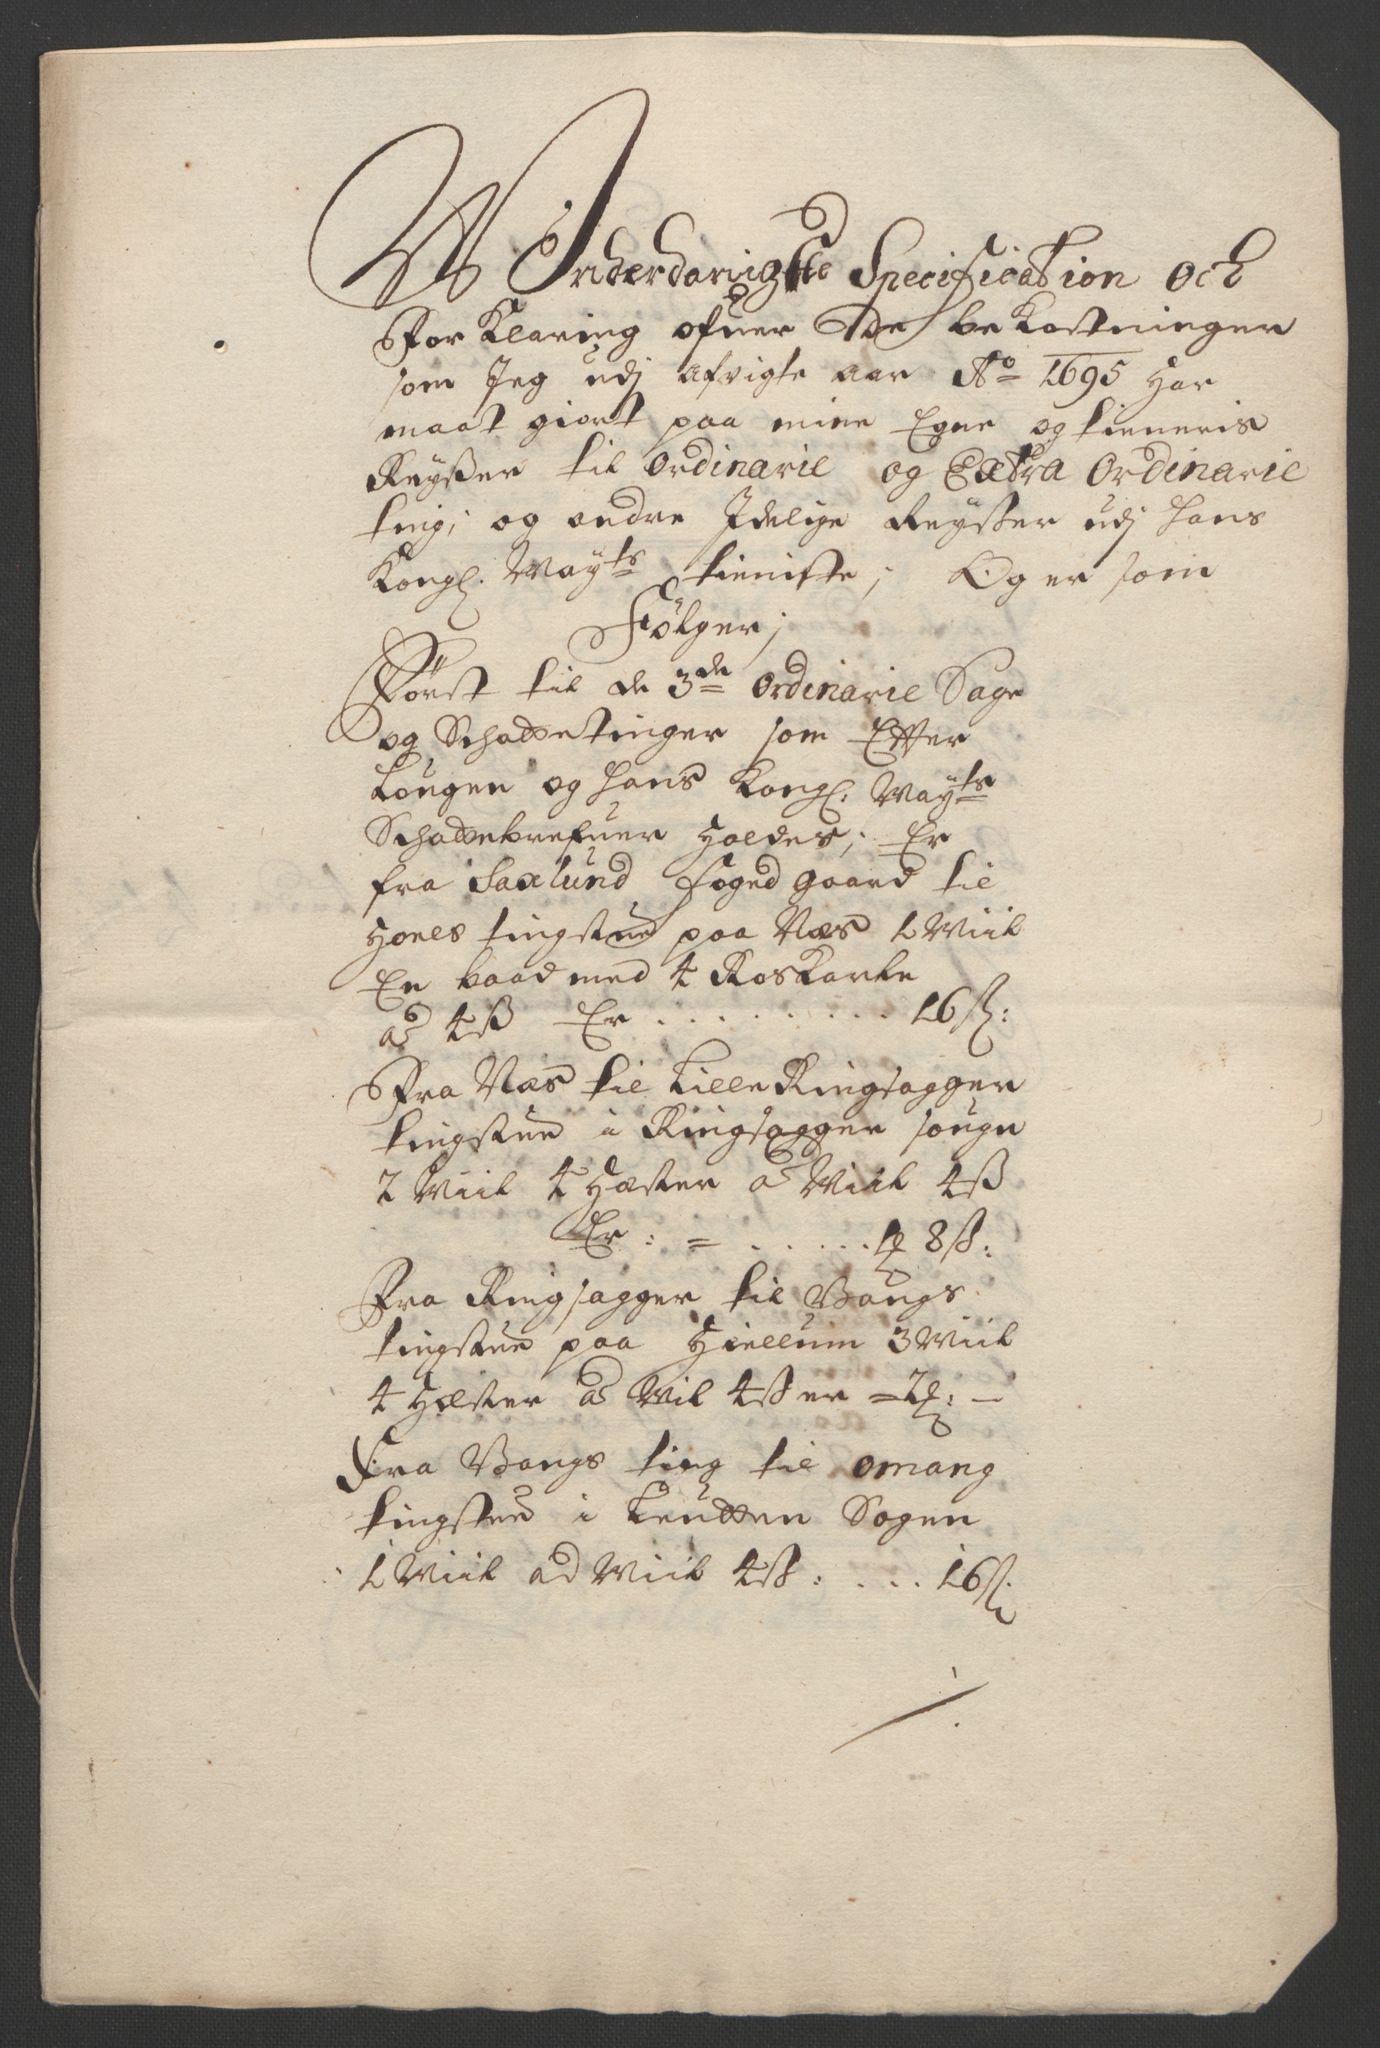 Underdanigste Specification och
Forklaring ofuer de bekostninger
som Jeg udj afvigte aar Ao 1695 har
maat giort paa mine Egne og tieneris
Reyßer til Ordinarie og Extra Ordinarie
ting, og andre Idelige Reyßer udj hans
Kongl. Mayts tieniste; Og er som
Følger;
Først til de 3de Ordinarie Sage
og Schattetinger som Effter
Lougen og hans Kongl: Mayts
Schattebrefuer holdes; Er
fra Saxlund foged gaard til
hoels tingstue paa Næs 1 Miil
En baad med 4 Roskarle
a 4ß Er . . . . . . . . 16ß:
Fra Næs til Lille Ringsagger
tingstue i Ringsagger sougn
2 Miil 4 hæster a Miil 4ß
Er : = . . . . . 1 8ß:
Fra Ringsagger til Vangs
tingstue paa Hiellum 3 Miil
4 hæster a Mil 4ß er = 2: —
Fra Vangs ting til Omang
tingstue i Leutten Sogen
1 Miil ad Miil 4ß: . . . 16ß: